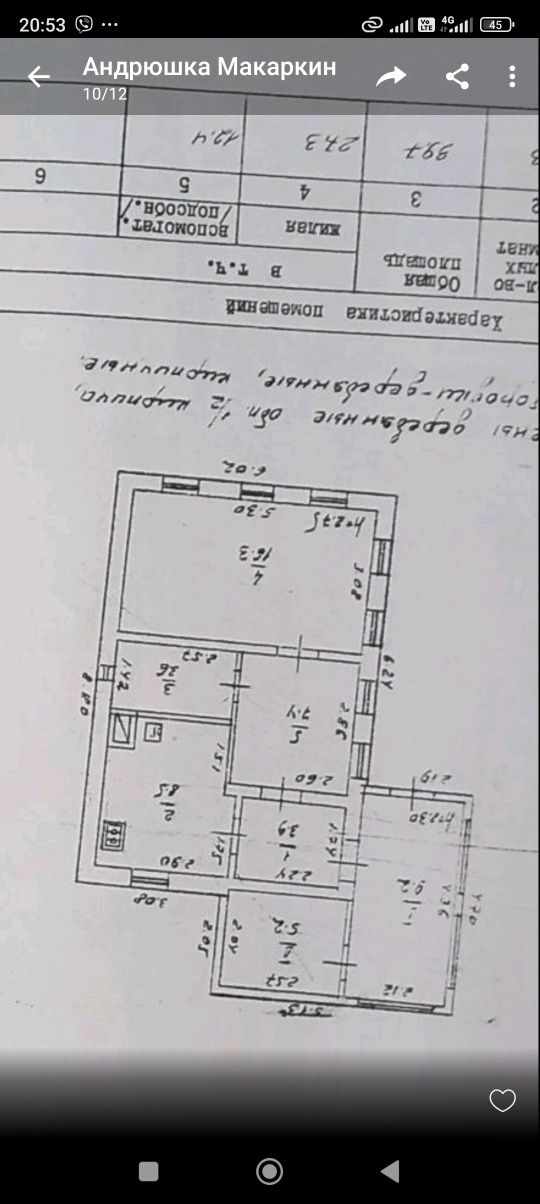 20:53
Vo LTE
4G
45
Андрюшка Макаркин
10/12
ены деревянные обл. 1/2 кирпича,
городки-деревянные, кирпичные.
Характеристика помещений
Общая площадь
в т.ч.
жилая
вспомогат. /подсобн./
2
3
4
5
6
3
39.7
27.3
12.4
3.13
2.12
2.57
1-1
5.2
2.04
2.05
3.08
4.70
4.36
h=2.30
2.19
2.24
1
3.9
1.74
1.75
2.90
2
8.5
1.51
2.60
5
7.4
2.86
2.57
3
3.6
1.42
8.80
6.24
3.08
4
16.3
h=2.75
5.30
6.02